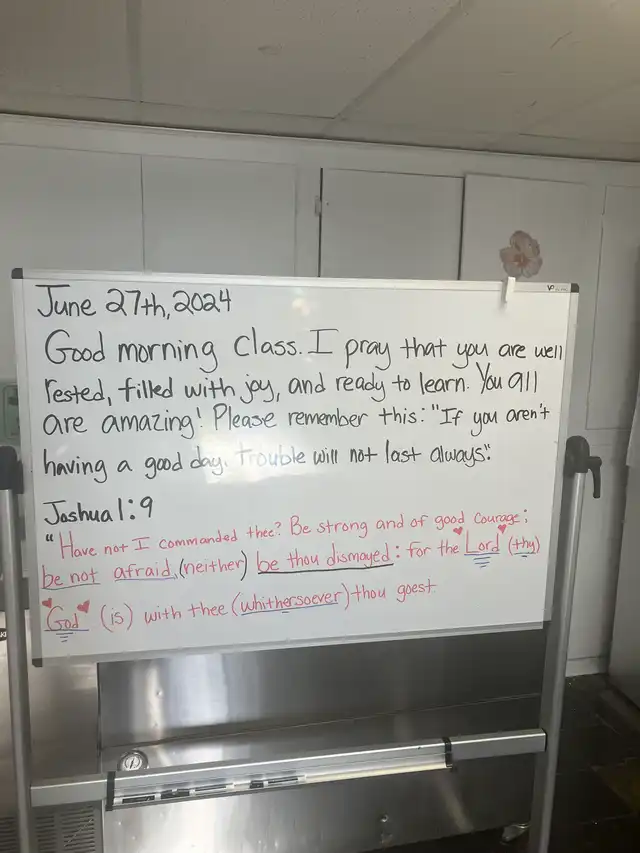 June 27th, 2024
Good morning class. I pray that you are well
rested, filled with joy, and ready to learn. You all
are amazing! Please remember this: "If you aren't
having a good day, trouble will not last always".
Joshua 1:9
"Have not I commanded thee? Be strong and of good courage;
be not afraid, (neither) be thou dismayed: for the Lord (thy)
God (is) with thee (whithersoever) thou goest